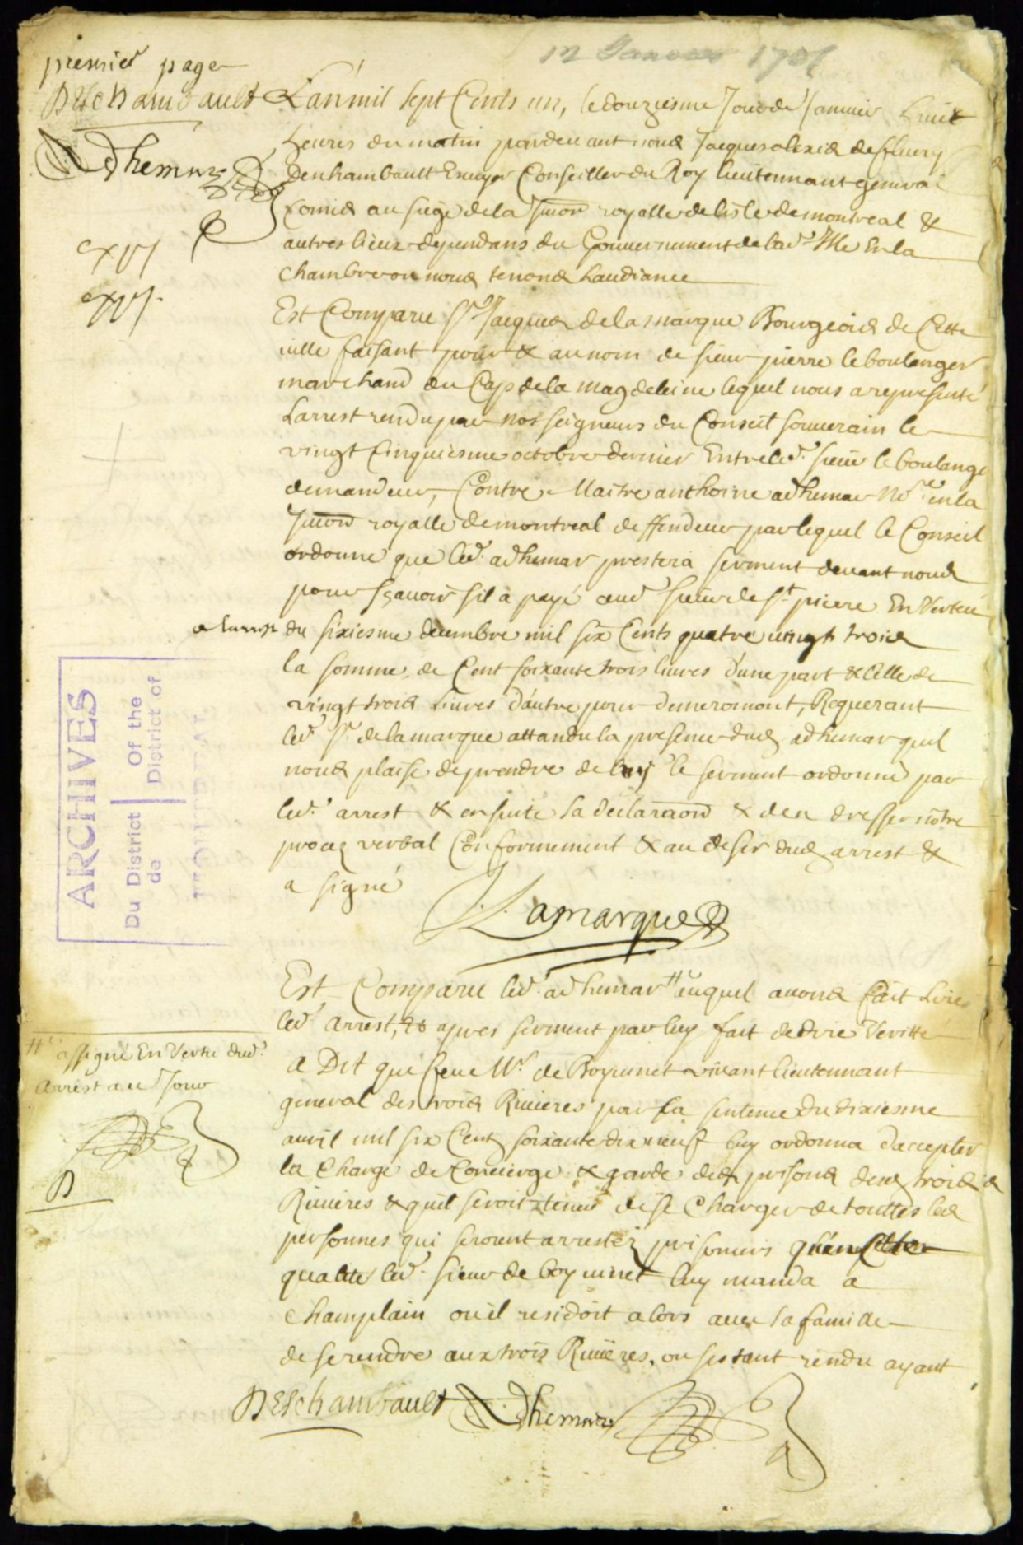 12 Janvier 1701
premier page
Deschambault
Adhemar
L'an mil sept Cents un, le douziesme Jour de Janvier huict
heures du matin pardevant nous Jacques alexis de fleury
Deschambault Escuyer Conseiller du Roy lieutennant general
Commis au siege de la Jurion royalle de lisle de montreal &
autres lieux dependans du Gouvernement de lad. Isle En la
Chambre ou nous tenons Laudiance
Est Comparu Sr. Jacques de la marque Bourgeois de Cette
ville faisant pour & au nom de sieur pierre le boulanger
marchand du Cap de la magdeleine lequel nous a represente
Larrest rendu par nos seigneurs du Conseil souverain le
vingt Cinquiesme octobre dernier Entre led. sieur le boulange
demandeur, Contre Maitre anthoine adhemar Nore. en la
Jurion royalle de montreal deffendeur par lequel le Conseil
ordonne que led. adhemar prestera serment devant nous
pour sçavoir sil a payé aud. sieur de St. pierre En Vertu
de larrest du sixiesme decembre mil six Cents quatre vingt trois
la somme de Cent soixante trois livres d'une part & Celle de
vingt trois livres d'autre pour Requerant
led. Sr. de lamarque attandu la presence dud. adhemar quil
nous plaise de prendre de luy le serment ordonné par
led. arrest & ensuite sa declaraon & den dresser nôtre
procez verbal Conformement & au desir dud. arrest &
a signé
Lamarque
Est Comparu led. adhemar # auquel avons fait Lire
led. arrest, & apres serment par luy fait de dire Veritté
# assigné En Vertu dud.
Arrest a ce Jour
D
a Dit que feue Mr. de Boyvinet vivant lieutennant
general des trois Rivieres par sa sentence du dixiesme
avril mil six Cents soixante dix neuf luy ordonna daccepter
la Charge de Concierge & garde des prisons desd. trois
Rivieres & quil seroit tenu de se Charger de touttes les
personnes qui seroient arrestez prisonniers quen Cette
qualite led. sieur de boyvinet luy manda a
Champlain ou il residoit alors avec sa famille
de se rendre aux trois Rivieres, ou sestant rendu ayant
Deschambault Adhemar
ARCHIVES
Du District Of the
de District of